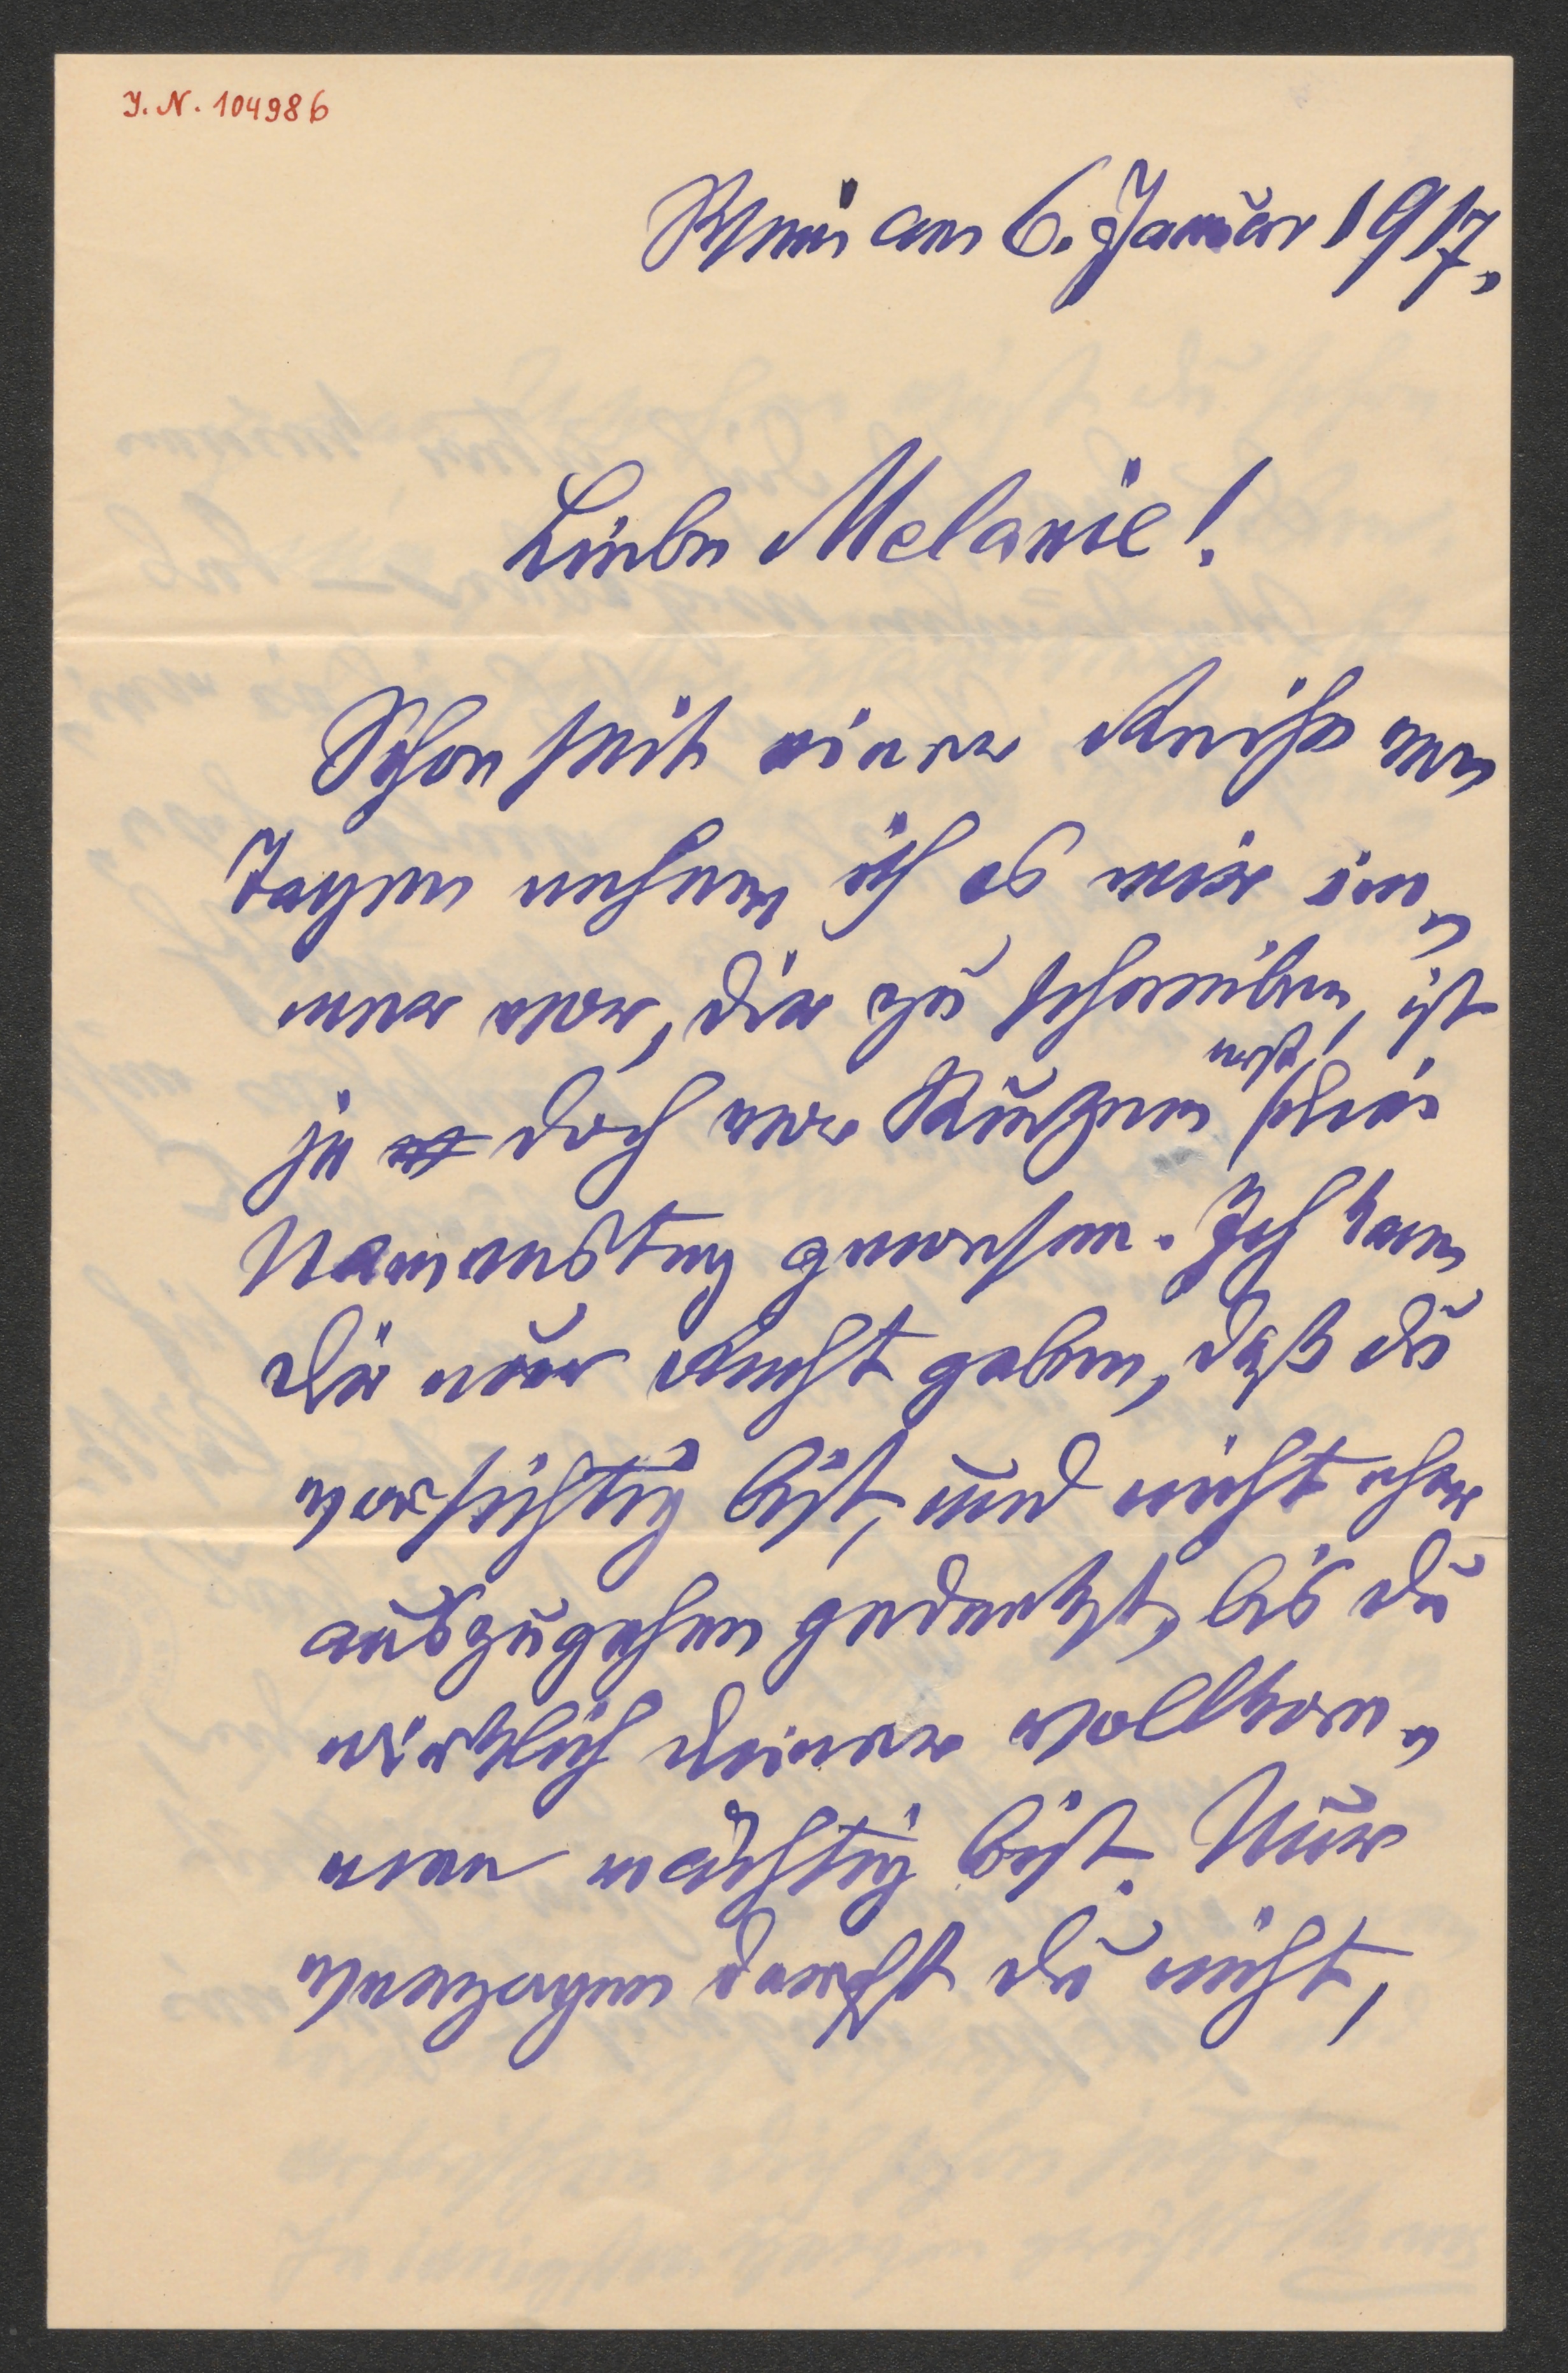 J. N. 104986
Wien am 6. Januar 1917.
Liebe Melanie!
Schon seit einer Reihe von
Tagen nehme ich es mir im„
mer vor, dir zu schreiben, ist
ja doch vor Kurzem erst, dein
Namenstag gewesen. Ich kann
dir nur Recht geben, daß du
vorsichtig bist, und nicht eher
auszugehen gedenkst, bis du
wirklich deiner vollkom„
men mächtig bist. Nur
verzagen darfst du nicht,